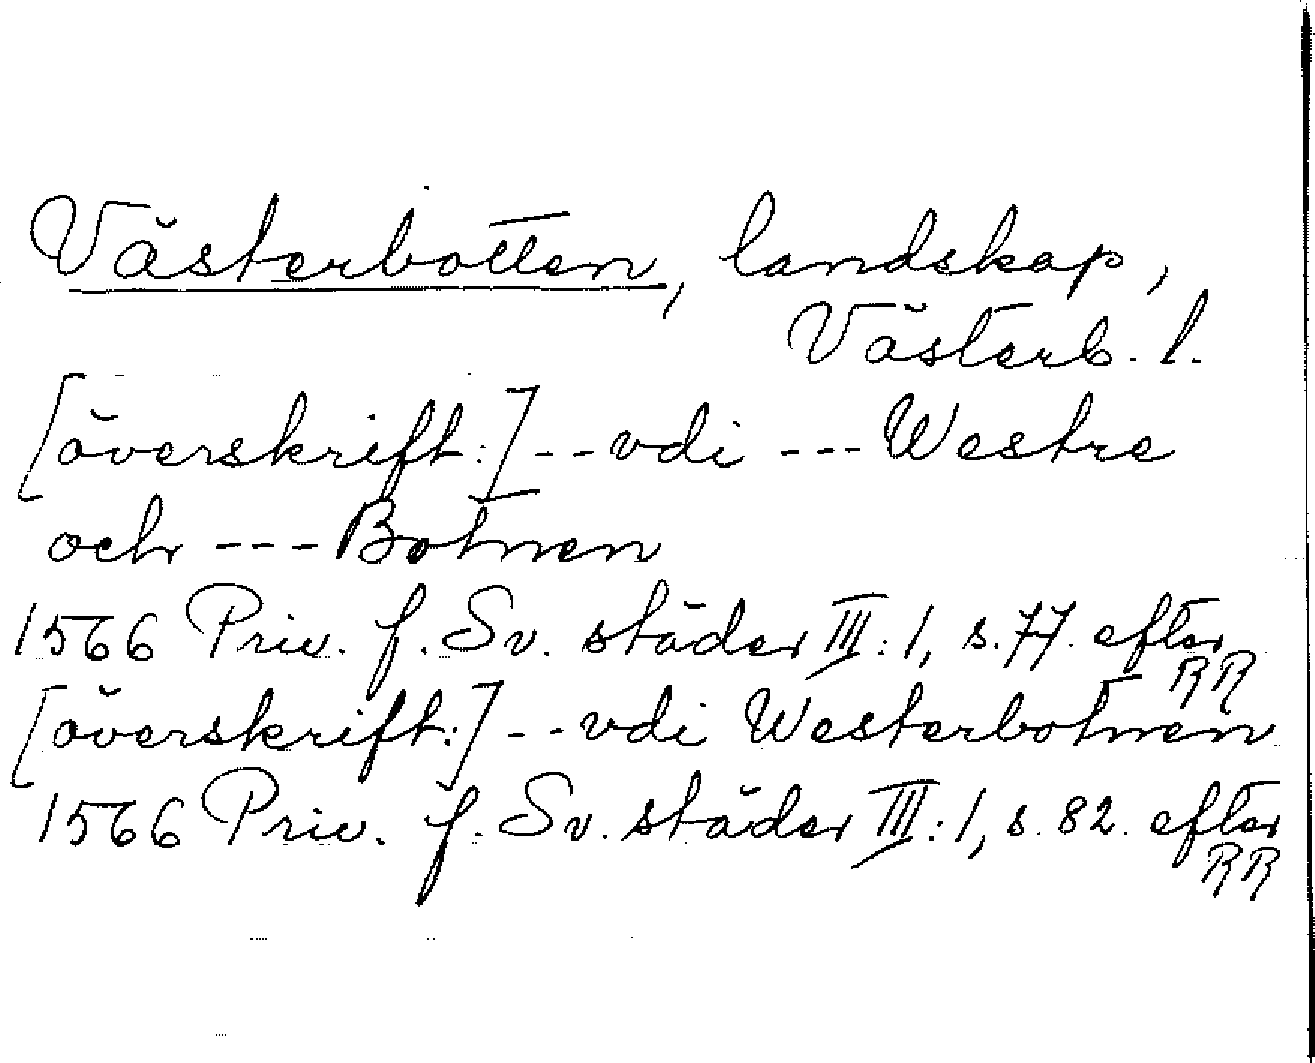 Västerbotten, landskap,
Västerb. l.
[överskrift:] -- vdi --- Westre
och --- Botnen
1566 Priv. f. Sv. städer III: 1, s. 77. efter
RR
[överskrift:] -- vdi Westerbotnen
1566 Priv. f. Sv. städer III: 1, s. 82. efter
RR